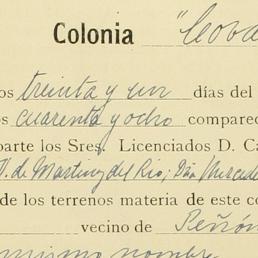 Colonia "Cova
os treinta y un días del
os cuarenta y ocho compared
parte los Sres. Licenciados D. Ca
V. de Martinez del Rio; Dña Mercede
de los terrenos materia de este co
vecino de Peñón
mismo nombre